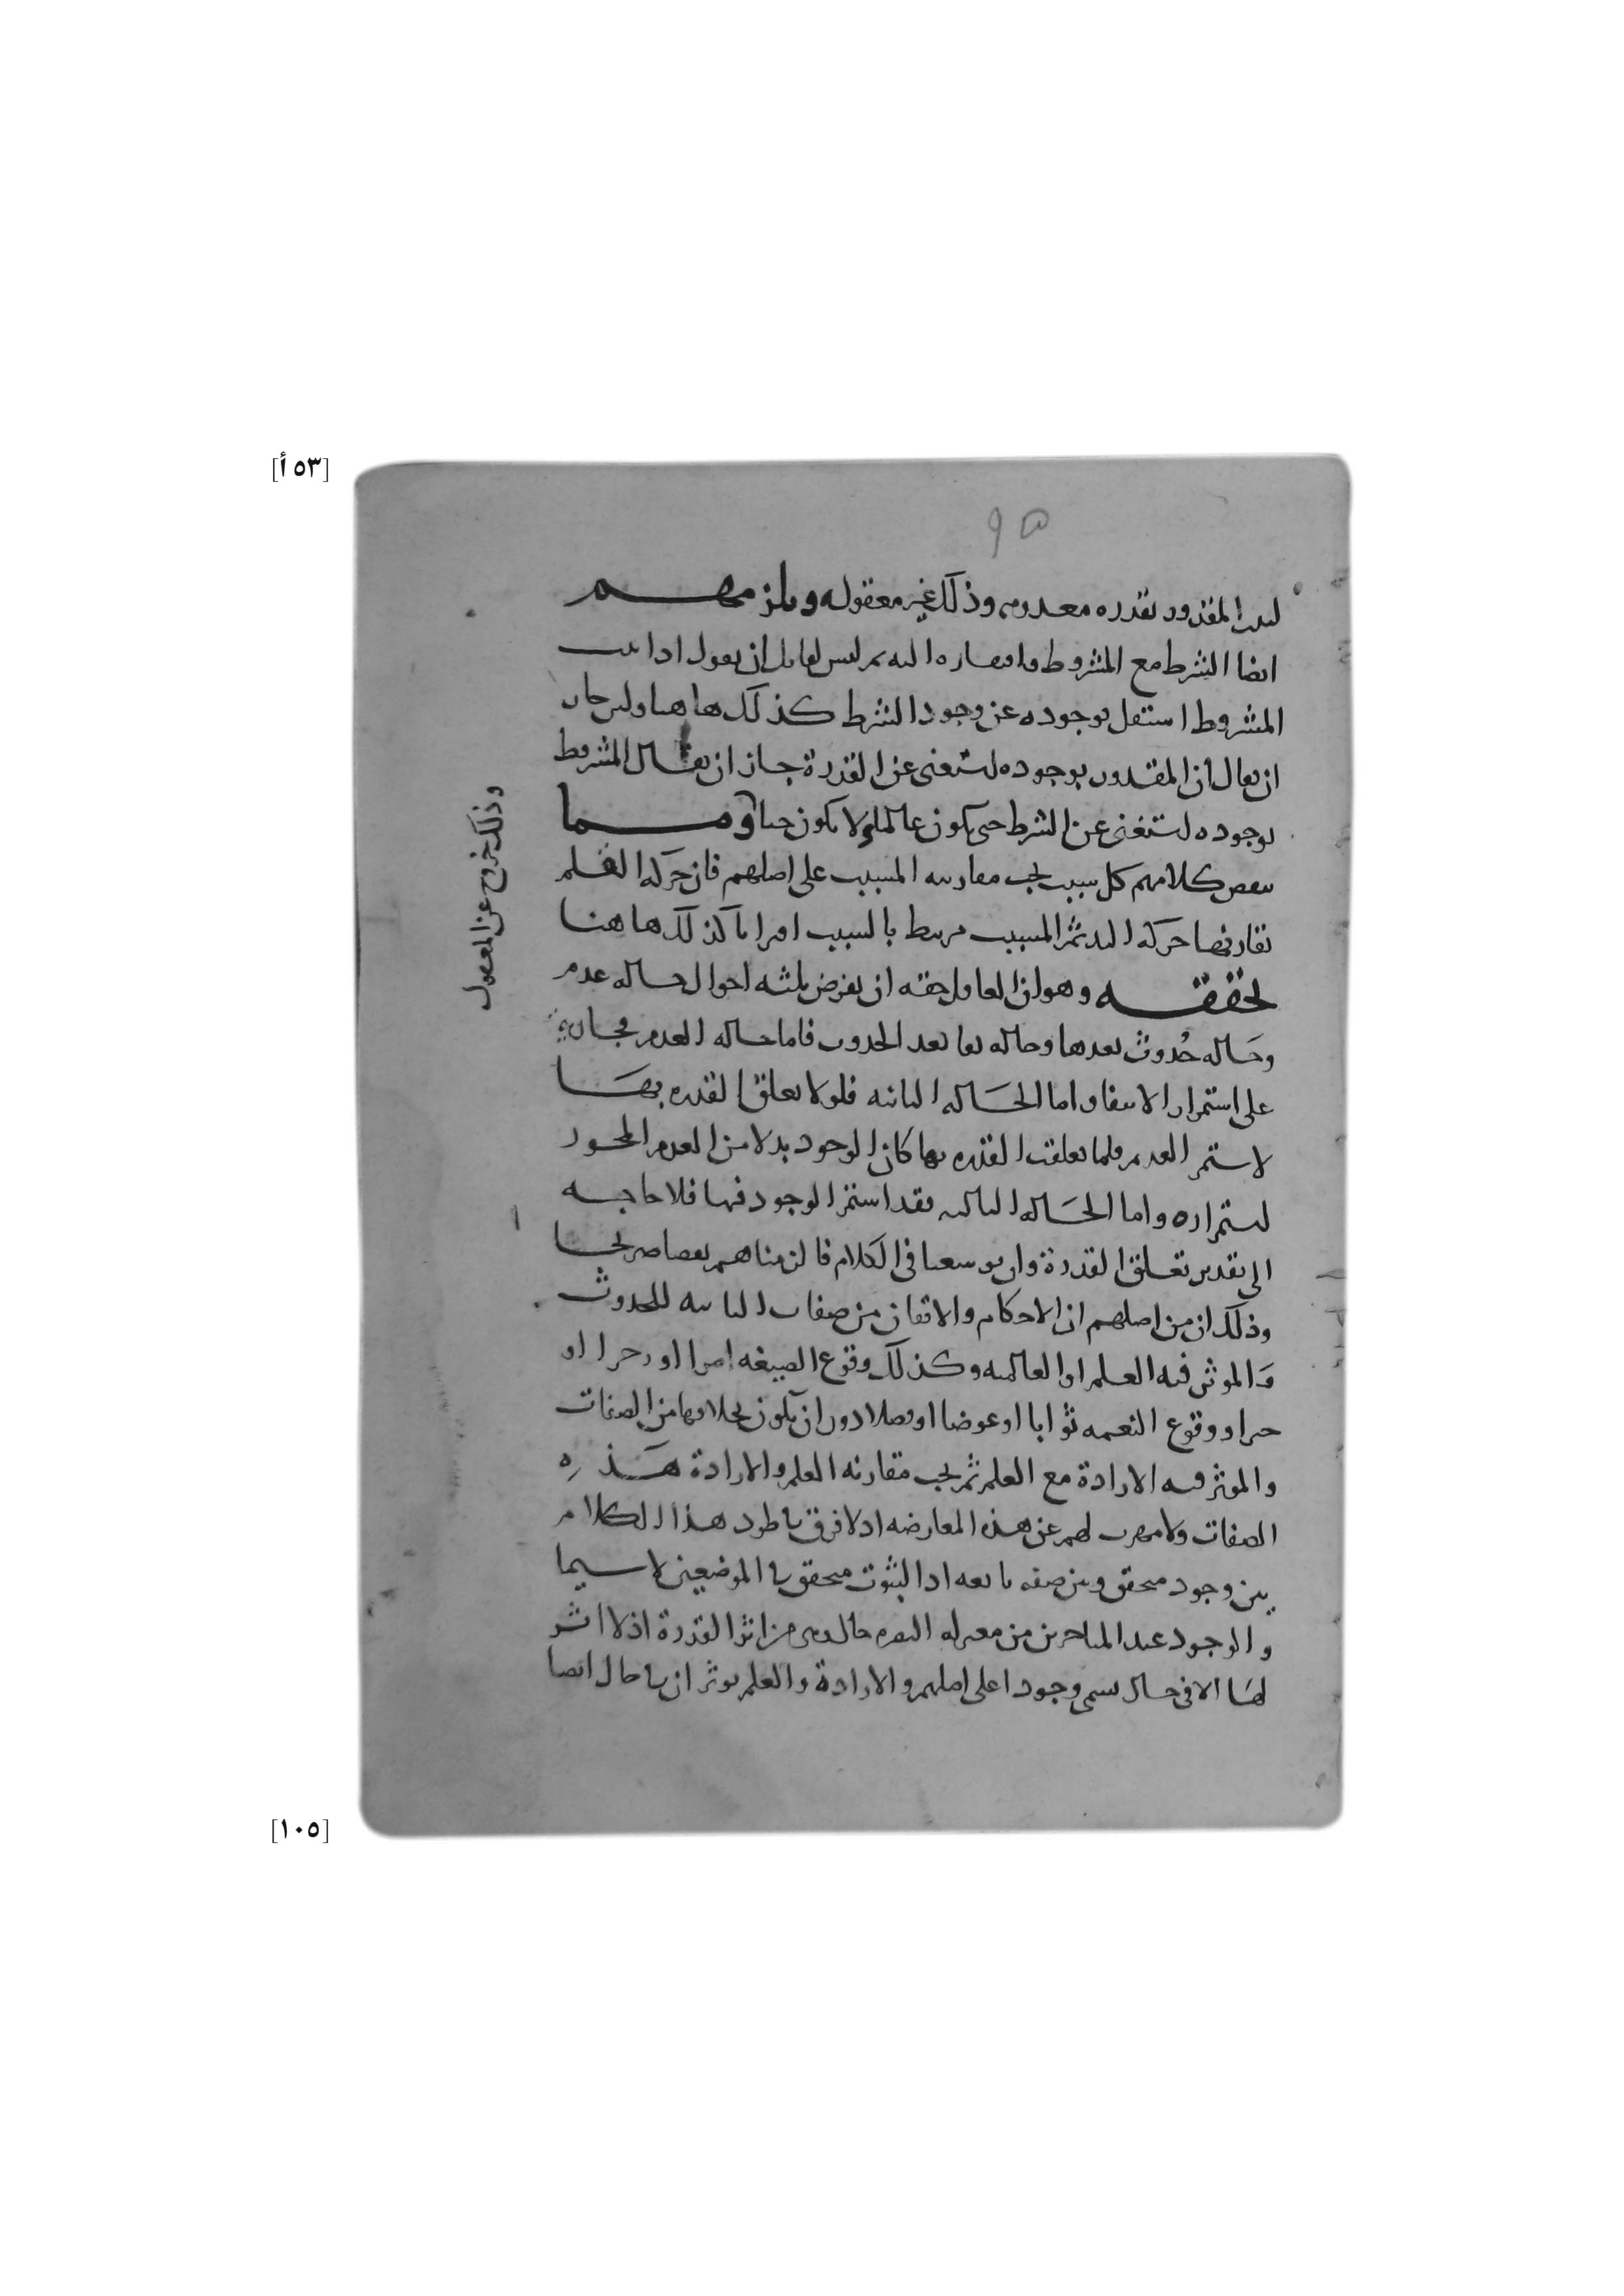 [٥٣ أ]
٩٥
المقدور بقدره معدومه وذلك غير معقول ويلزمهم
ايضا الشرط مع المشروط وافتقاره اليه ثم ليس لقايل ان يقول اذا ثبت
المشروط استقل بوجوده عن وجود الشرط كذلك هاهنا ولين جاز
ان يقال ان المقدور بوجوده يستغنى عن القدرة جاز ان يقال المشروط
بوجوده يستغنى عن الشرط حتى يكون عالما ولا يكون حيا ومما
ينقض كلامهم كل سبب يجب مقارنته المسبب على اصلهم فان حركه القلم
تقارنها حركه اليد ثم المسبب مرتبط بالسبب كذلك هاهنا
تحقيقه وهو ان العاقل حقه ان يفرض ثلثه احوال حاله عدم
وحاله حُدوث بعدها وحاله بقا بعد الحدوث فاما حاله العدم
على استمرار الانتفا واما الحاله الثانيه فلولا تعلق القدره بها
لاستمر العدم فلما تعلقت القدره بها كان الوجود بدلا من العدم المجوز
استمراره واما الحاله الثالثه فقد استمر الوجود فيها فلا حاجه
الى تقدير تعلق القدرة وان توسعنا فى الكلام فالزمناهم نقضا صريحا
وذلك ان من اصلهم ان الاحكام والاتقان من صفات التابعه للحدوث
والموثر فيه العلم او العالميه وكذلك وقوع الصيغه امرا او زجرا او
خبرا ووقوع النعمه ثوابا او عوضا او فضلا دون ان يكون بخلافها من الصفات
والموثر فيه الارادة مع العلم ثم يجب مقارنه العلم والارادة هذه
الصفات ولا مهرب لهم عن هذه المعارضه اذ لا فرق فى طرد هذا الكلام
بين وجود متحقق وبين صفه تابعه اذ الثبوت متحقق فى الموضعين لاسيما
والوجود عند المتاخرين من معتزله البصره حال وهى من اثر القدرة اذ لا اثر
لها الا فى حال يسمى وجودا على اصلهم والارادة والعلم يوثران فى حال ايضا
وذلك خروج عن المعقول
[١٠٥]